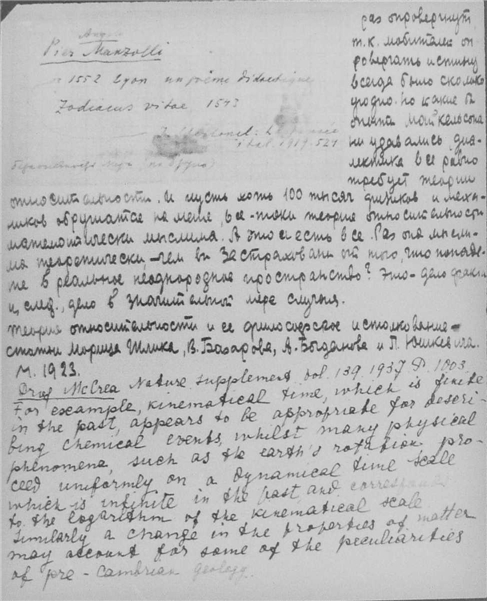 Pier Manzolli
1552 Lyon un poème didactique
Zodiacus vitae 1543
раз опровергнут
т.к. любителей оп
ровергать истину
всегда было сколько
угодно. Но какие б
опыты Майкельсона
ни удавались, диа-
лектика все равно
требует теории
относительности. И пусть хоть 100 тысяч физиков и меха-
ников обрушатся на меня, все-таки теория относительности
математически мыслима. А это и есть все. Раз она мысли-
ма теоретически – чем вы застрахованы от того, что попаде-
те в реальное неоднородное пространство? Это – дело факта
и, след., дело в значительной мере случая.
Теория относительности и ее философское истолкование –
статьи Морица Шлика, В. Базарова, А. Богданова и П. Юшкевича.
М. 1923.
McCrea Nature supplement vol. 139. 1937 P. 1003
For example, kinematical time, which is finite
in the past, appears to be appropriate for descri-
bing chemical events, whilst many physical
phenomena, such as the earth's rotation pro-
ceed uniformly on a dynamical time scale
which is infinite in the past and corresponds
to the logarithm of the kinematical scale
Similarly a change in the properties of matter
may account for some of the peculiarities
of pre-Cambrian geology.